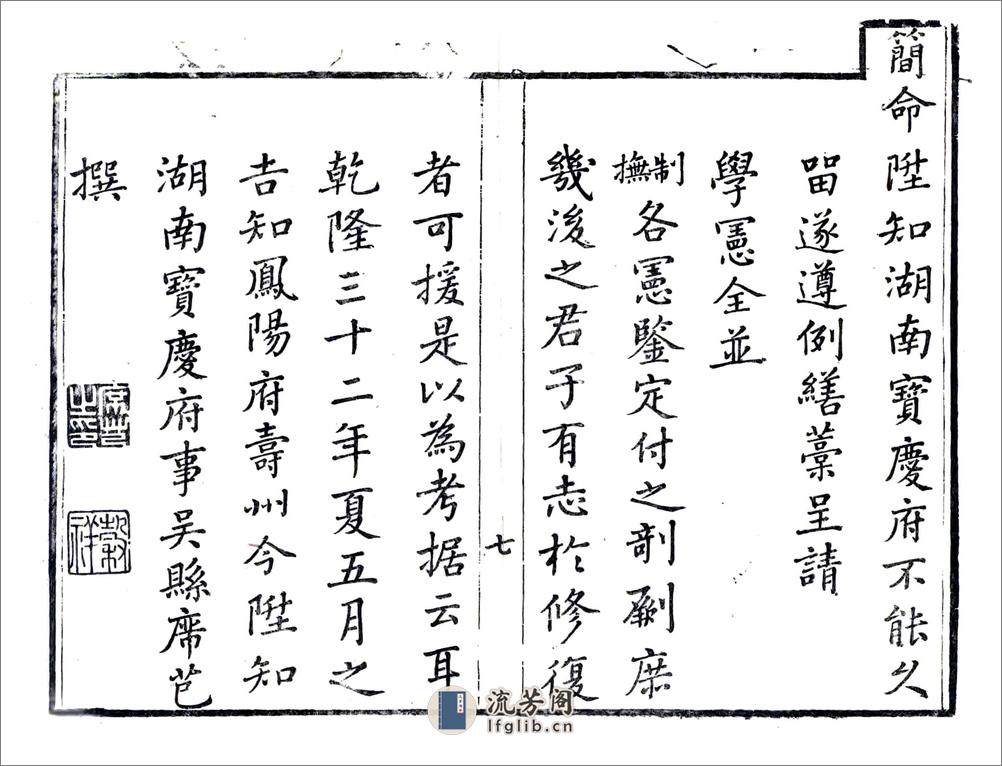 簡命陞知湖南寶慶府不能久
畱遂遵例繕藁呈請
學憲全並
制撫各憲鑒定付之剞劂庶
幾後之君子有志於修復
七
者可援是以為考据云耳
乾隆三十二年夏五月之
吉知鳳陽府壽州今陞知
湖南寶慶府事吳縣席芑
撰
流芳阁
lfglib.cn